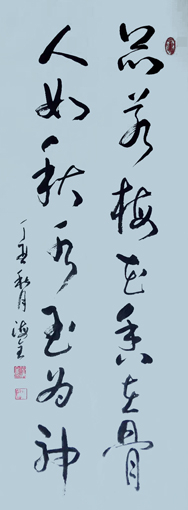 品若梅花香在骨
人如秋水玉为神
丁亥秋月